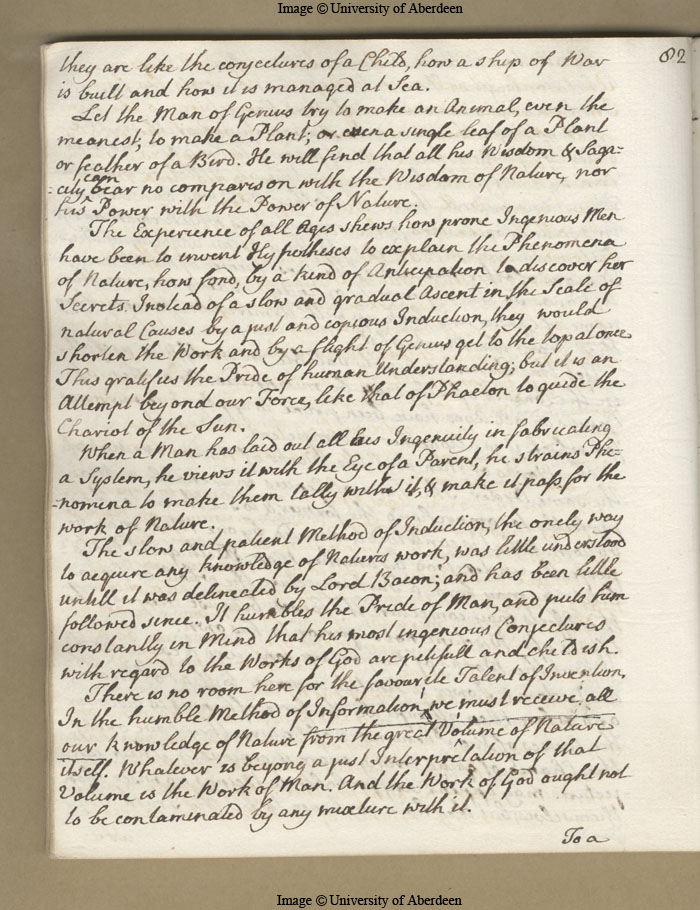 Image © University of Aberdeen
82
they are like the conjectures of a Child, how a ship of War
is built and how it is managed at Sea.
Let the Man of Genius try to make an Animal, even the
meanest, to make a Plant; or even a single leaf of a Plant
or feather of a Bird. He will find that all his Wisdom & Saga=
=city can bear no comparison with the Wisdom of Nature, nor
his Power with the Power of Nature.
The Experience of all Ages shews how prone Ingenious Men
have been to invent Hypotheses to explain the Phenomena
of Nature, how fond, by a kind of Anticipation to discover her
Secrets. Instead of a slow and gradual Ascent in the Scale of
natural Causes by a just and copious Induction, they would
shorten the Work and by a flight of Genius get to the top at once
This gratifies the Pride of human Understanding; but it is an
Attempt beyond our Force, like that of Phaeton to guide the
Chariot of the Sun.
When a Man has laid out all his Ingenuity in fabricating
a System, he views it with the Eye of a Parent, he strains Phe=
=nomena to make them tally with it, & make it pass for the
work of Nature.
The slow and patient Method of Induction, the onely way
to acquire any knowledge of Natures work, was little understood
untill it was delineated by Lord Bacon; and has been little
followed since. It humbles the Pride of Man, and puts him
constantly in Mind that his most ingenious Conjectures
with regard to the Works of God are pitifull and childish.
There is no room here for the favourite Talent of Invention.
In the humble Method of Information, we must receive all
our knowledge of Nature from the great Volume of Nature
itself. Whatever is beyong a just Interpretation of that
Volume is the Work of Man. And the Work of God ought not
to be contaminated by any mixture with it.
To a
Image © University of Aberdeen